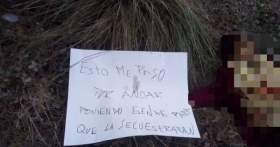 ESTO ME PASO
POR ANDAR
PONIENDO GENTE PARA
QUE LA SECUESTRARAN